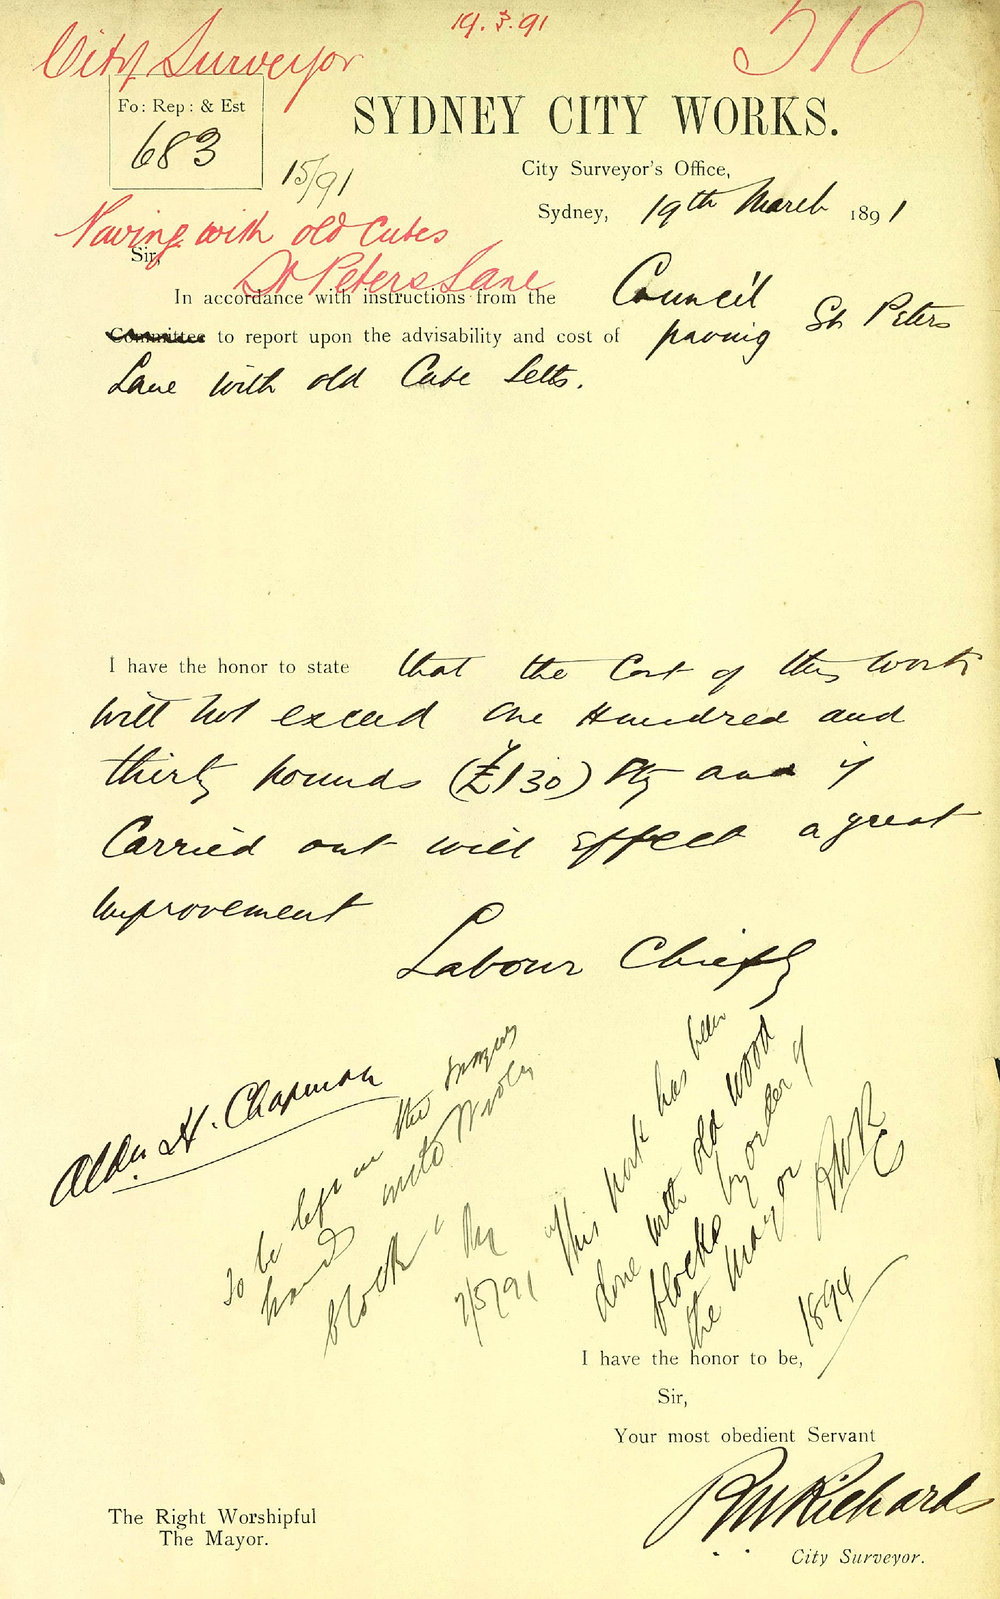 19.3.91
510
City Surveyor
Fo: Rep: & Est
683
15/91
SYDNEY CITY WORKS.
City Surveyor's Office,
Sydney, 19th March 1891
Paving with old Cubes
St Peters Lane
Sir,
In accordance with instructions from the Council
Committee to report upon the advisability and cost of paving St Peters
Lane with old Cube Setts.
I have the honor to state that the Cost of this work
will not exceed One Hundred and
thirty pounds (£130) and if
Carried out will effect a great
improvement
Labour Chiefly
Aldn H. Chapman
To be left in the Mayors
hands
block
7/5/91
This work has been
done with old wood
blocks by order of
the Mayor
1894
I have the honor to be,
Sir,
Your most obedient Servant
RWRichards
City Surveyor.
The Right Worshipful
The Mayor.